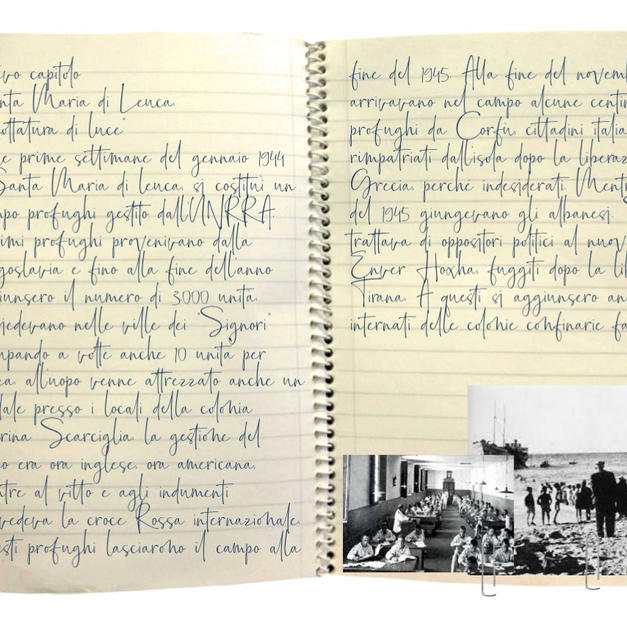 vo capitolo
nta Maria di Leuca.
ottatura di luce"
e prime settimane del gennaio 1944
Santa Maria di leuca, si costituì un
po profughi gestito dall'UNRRA.
imi profughi provenivano dalla
goslavia e fino alla fine dell'anno
iunsero il numero di 3000 unità.
iedevano nelle ville dei "Signori"
upando a volte anche 10 unità per
za, all'uopo venne attrezzato anche un
dale presso i locali della colonia
rina Scarciglia. la gestione del
o era ora inglese, ora americana,
tre al vitto e agli indumenti
vedeva la croce Rossa internazionale.
sti profughi lasciarono il campo alla
fine del 1945. Alla fine del novem
arrivavano nel campo alcune centin
profughi da Corfù, cittadini italia
rimpatriati dall'isola dopo la liberaz
Grecia, perché indesiderati. Mentr
del 1945 giungevano gli albanesi. S
trattava di oppositori politici al nuov
Enver Hoxha, fuggiti dopo la lib
Tirana. A questi si aggiunsero an
internati delle colonie confinarie fa